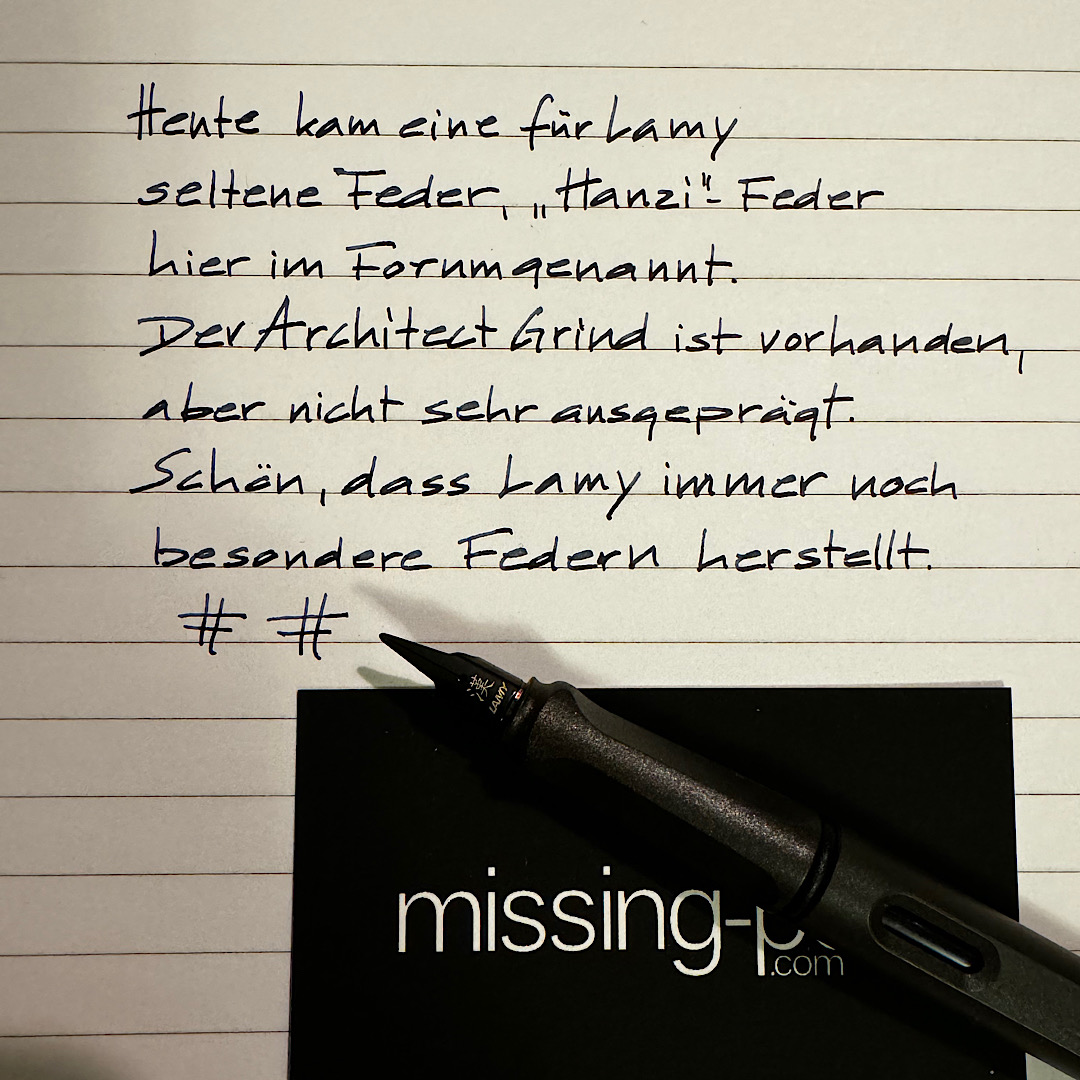 Heute kam eine für Lamy
seltene Feder, „Hanzi"- Feder
hier im Forum genannt.
Der Architect Grind ist vorhanden,
aber nicht sehr ausgeprägt.
Schön, dass Lamy immer noch
besondere Federn herstellt.
# #
漢
LAMY
missing-p
.com